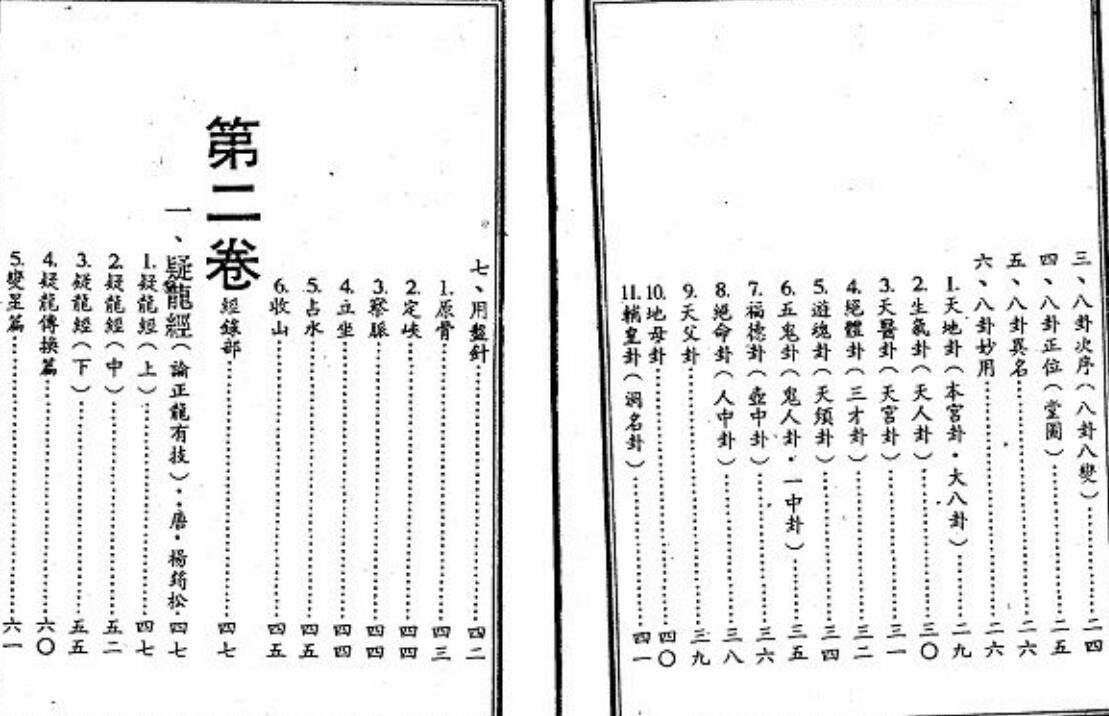 三、八卦次序（八卦八變）……二四
四、八卦正位（堂圖）……二五
五、八卦異名……二六
六、八卦妙用……二六
1.天地卦（本宮卦・大八卦）……二九
2.生氣卦（天人卦）……三〇
3.天醫卦（天宮卦）……三一
4.絕體卦（三才卦）……三二
5.遊魂卦（天須卦）……三四
6.五鬼卦（鬼人卦・一中卦）……三五
7.福德卦（壺中卦）……三六
8.絕命卦（人中卦）……三八
9.天父卦……三九
10.地母卦……四〇
11.輔皇卦（洞名卦）……四一
七、用盤針……四二
1.原骨……四三
2.定峽……四四
3.察脈……四四
4.立坐……四四
5.占水……四五
6.收山……四五
第二卷 經錄部……四七
一、疑龍經（論正龍有技）・・唐・楊筠松・四七
1.疑龍經（上）……四七
2.疑龍經（中）……五二
3.疑龍經（下）……五五
4.疑龍傳換篇……六〇
5.變星篇……六一